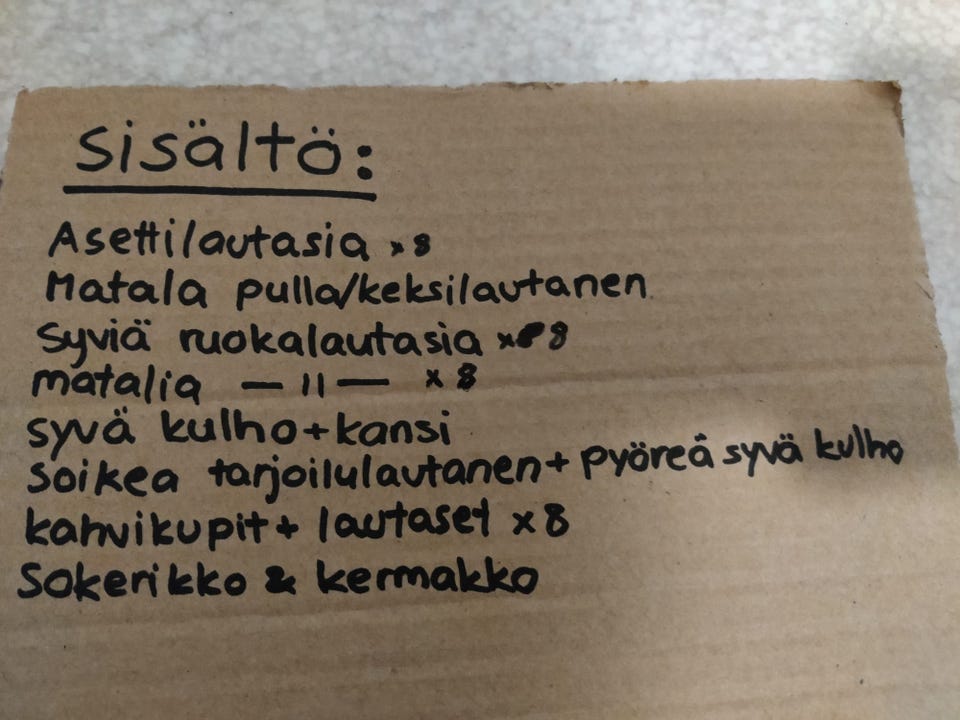 Sisältö:
Asettilautasia x 8
Matala pulla/keksilautanen
Syviä ruokalautasia x 8
matalia — 11 — x 8
syvä kulho+kansi
Soikea tarjoilulautanen+ pyöreä syvä kulho
kahvikupit+ lautaset x 8
Sokerikko & kermakko